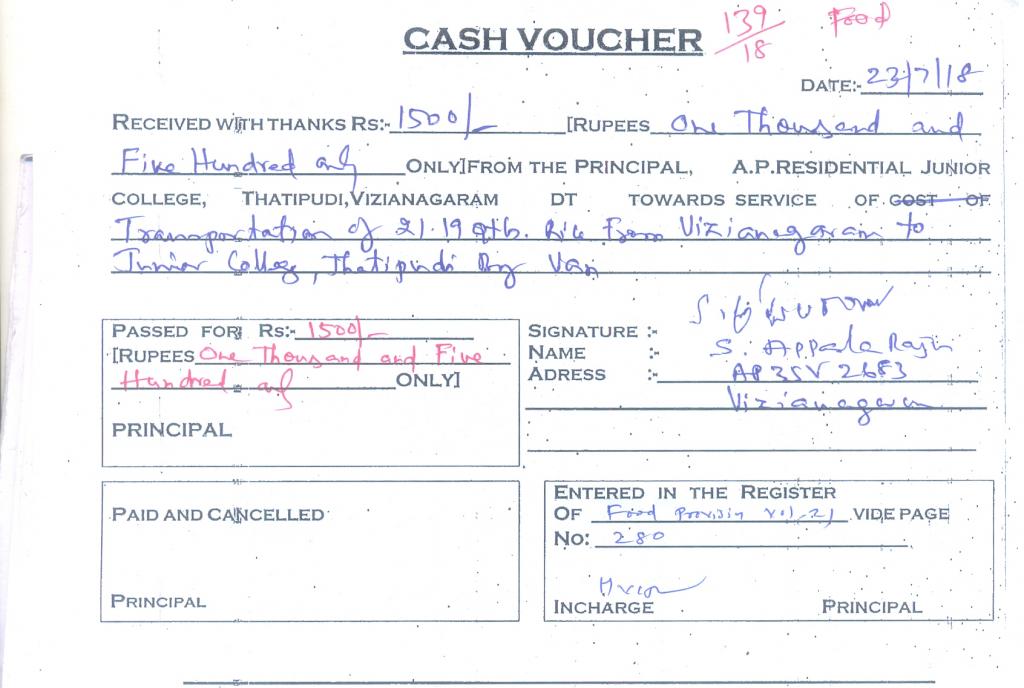 139/18 Food
CASH VOUCHER
DATE:- 23/7/18
RECEIVED WITH THANKS RS:- 1500/- [RUPEES One Thousand and
Five Hundred only ONLY] FROM THE PRINCIPAL, A.P.RESIDENTIAL JUNIOR
COLLEGE, THATIPUDI,VIZIANAGARAM DT TOWARDS SERVICE OF COST OF
Transportation of 21.19 qtls. Rice from Vizianagaram to
Junior College, Thatipudi By Van
PASSED FOR RS:- 1500/-
[RUPEES One Thousand and Five
Hundred only ONLY]
PRINCIPAL
SIGNATURE :-
NAME :- S. Appala Raju
ADRESS :- AP35V 2683
Vizianagaram
PAID AND CANCELLED
PRINCIPAL
ENTERED IN THE REGISTER
OF Food Provision Vol-21 VIDE PAGE
NO: 280
INCHARGE PRINCIPAL